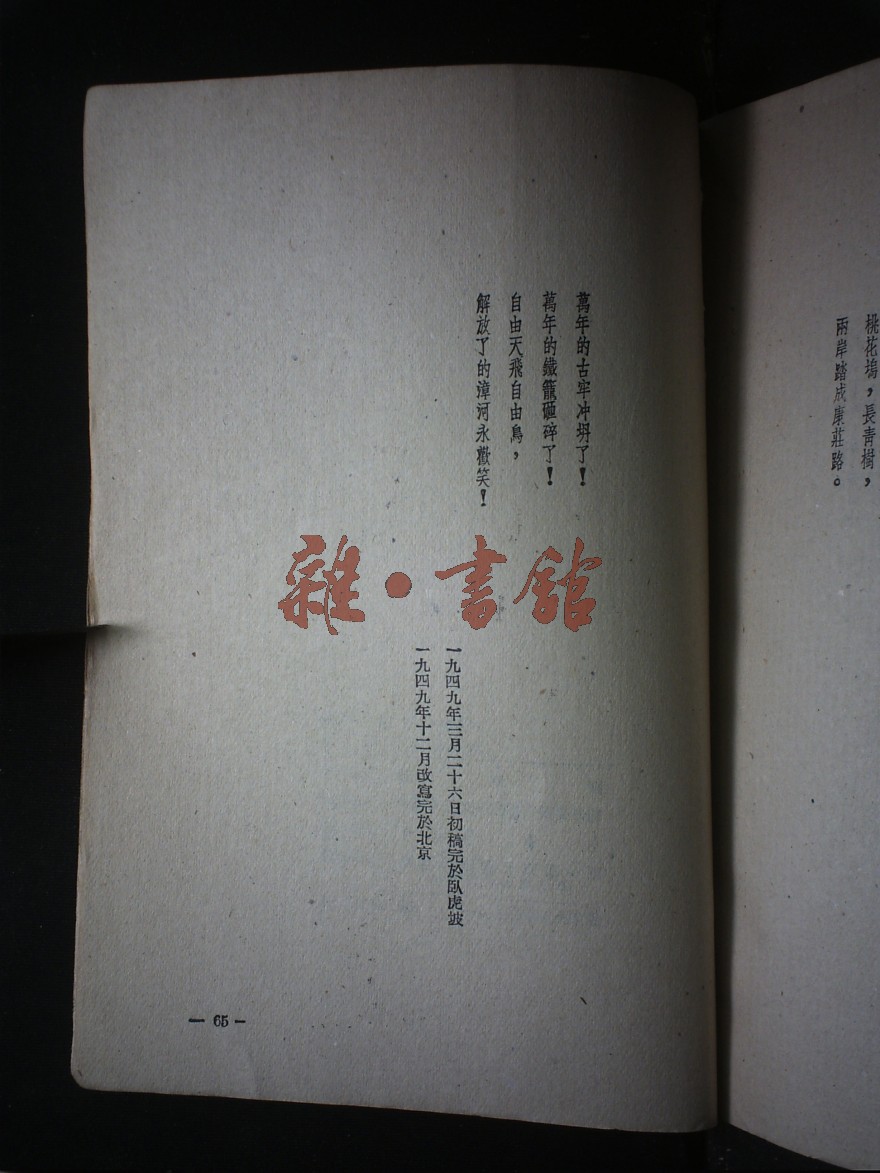 桃花塢，長青樹，
兩岸踏成康莊路。
萬年的古牢冲坍了！
萬年的鐵籠砸碎了！
自由天飛自由鳥，
解放了的漳河永歡笑！
一九四九年三月二十六日初稿完於臥虎坡
一九四九年十二月改寫完於北京
雜·書館
— 65 —